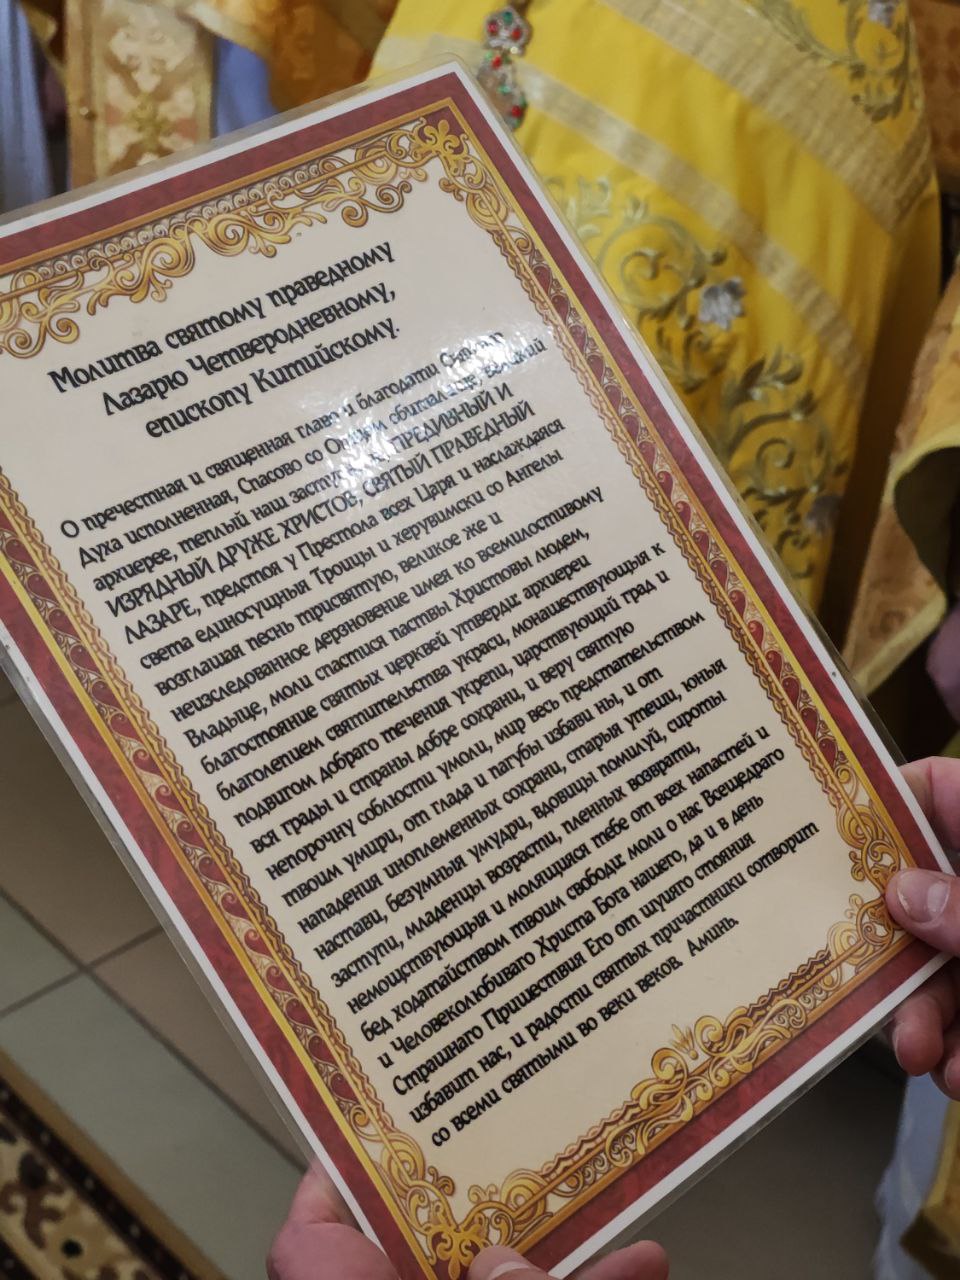 Молитва святому праведному
Лазарю Четверодневному,
епископу Китийскому.
О пречестная и священная главо и благодати
Духа исполненная, Спасово со Отцем обиталище, великий
архиерее, теплый наш ПРЕДИВНЫЙ И
ИЗРЯДНЫЙ ДРУЖЕ ХРИСТОВ, СВЯТЫЙ ПРАВЕДНЫЙ
ЛАЗАРЕ, предстоя у Престола всех Царя и наслаждаяся
света единосущныя Троицы и херувимски со Ангелы
возглашая песнь трисвятую, великое же и
неизследованное дерзновение имея ко всемилостивому
Владыце, моли спастися паствы Христовы людем,
благостояние святых церквей утверди: архиереи
благолепием святительства украси, монашествующыя к
подвигом добраго течения укрепи, царствующий град и
вся грады и страны добре сохрани, и веру святую
непорочну соблюсти умоли, мир весь предстательством
твоим умири, от глада и пагубы избави ны, и от
нападения иноплеменных сохрани, старыя утеши, юныя
настави, безумныя умудри, вдовицы помилуй, сироты
заступи, младенцы возрасти, пленных возврати,
немощствующыя и молящияся тебе от всех напастей и
бед ходатайством твоим свободи: моли о нас Всещедраго
и Человеколюбиваго Христа Бога нашего, да и в день
Страшнаго Пришествия Его от шуияго стояния
избавит нас, и радости святых причастники сотворит
со всеми святыми во веки веков. Аминь.